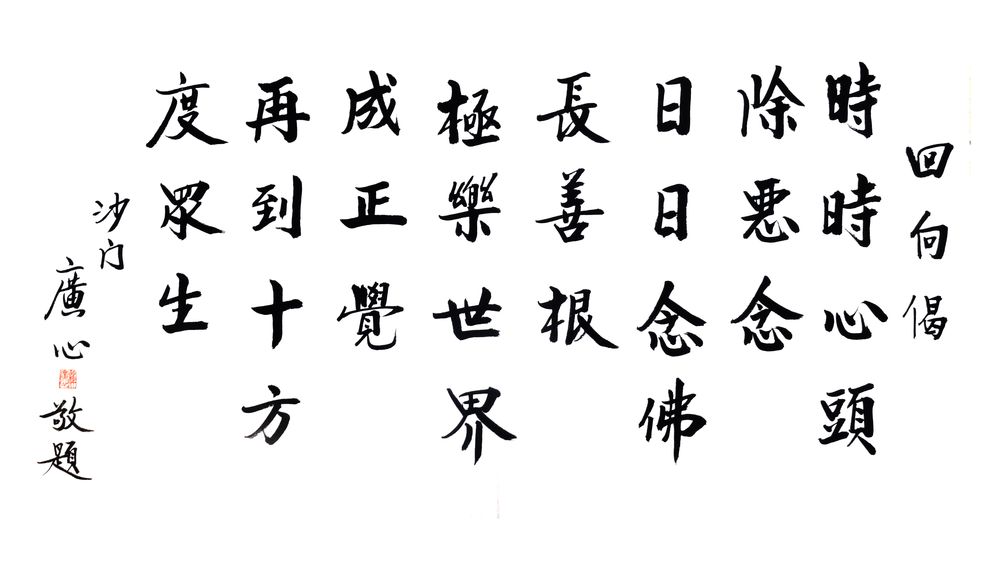 回向偈
時時心頭
除惡念
日日念佛
長善根
極樂世界
成正覺
再到十方
度眾生
沙门
廣心
敬題